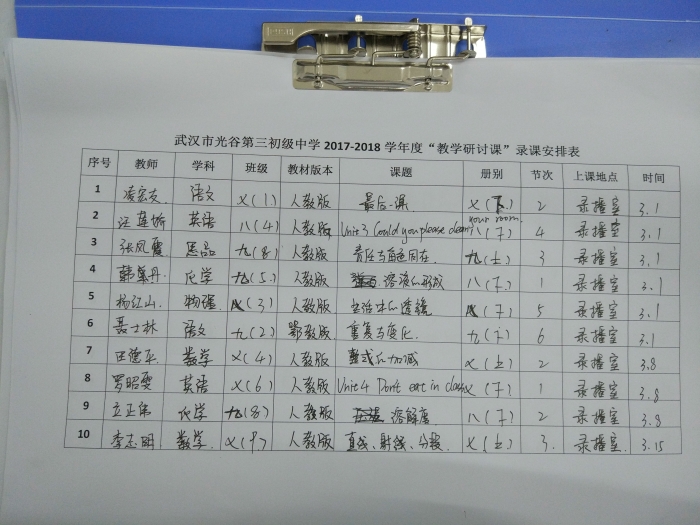 武汉市光谷第三初级中学 2017-2018 学年度“教学研讨课”录课安排表
序号 教师 学科 班级 教材版本 课题 册别 节次 上课地点 时间
1 凌宏友 语文 七(1) 人教版 最后一课 七(下) 2 录播室 3.1
2 汪莲娇 英语 八(4) 人教版 Unit 3 Could you please clean your room. 八(下) 4 录播室 3.1
3 张凤霞 思品 九(8) 人教版 责任与角色同在 九(上) 3 录播室 3.1
4 韩 丹 化学 九(5) 人教版 溶液的形成 八(下) 1 录播室 3.1
5 杨江山 物理 八(3) 人教版 生活中的透镜 八(下) 5 录播室 3.1
6 聂士林 语文 九(2) 鄂教版 重复与变化 九(下) 6 录播室 3.1
7 田德平 数学 七(4) 人教版 整式的加减 七(上) 2 录播室 3.8
8 罗昭雯 英语 七(6) 人教版 Unit 4 Don't eat in class 七(下) 1 录播室 3.8
9 立正伟 化学 九(8) 人教版 溶解度 八(下) 2 录播室 3.8
10 李志明 数学 七( ) 人教版 直线、射线、 七(上) 3. 录播室 3.15